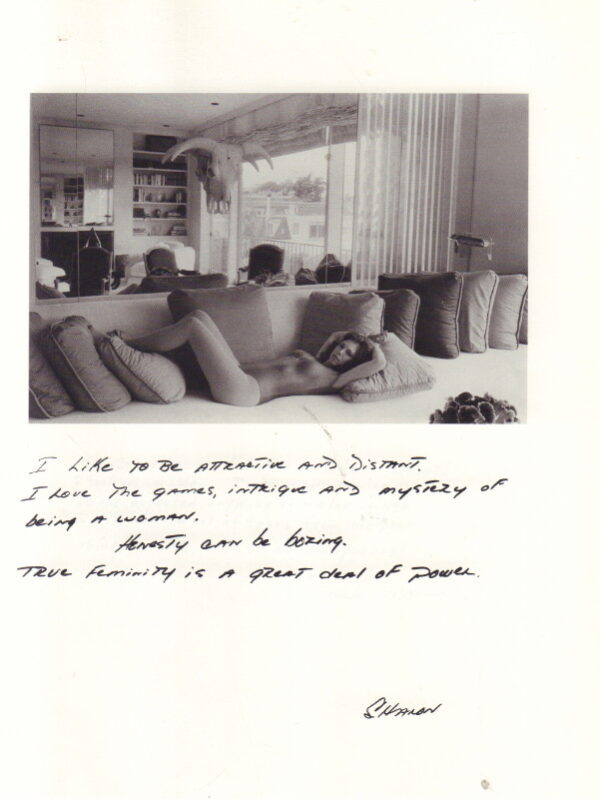 I Like TO BE ATTRACTIVE AND DISTANT.
I Love The games, intrigue AND mystery of
being A woman.
Honesty can be boring.
TRUE Feminity is A great deal of power.
SHARON